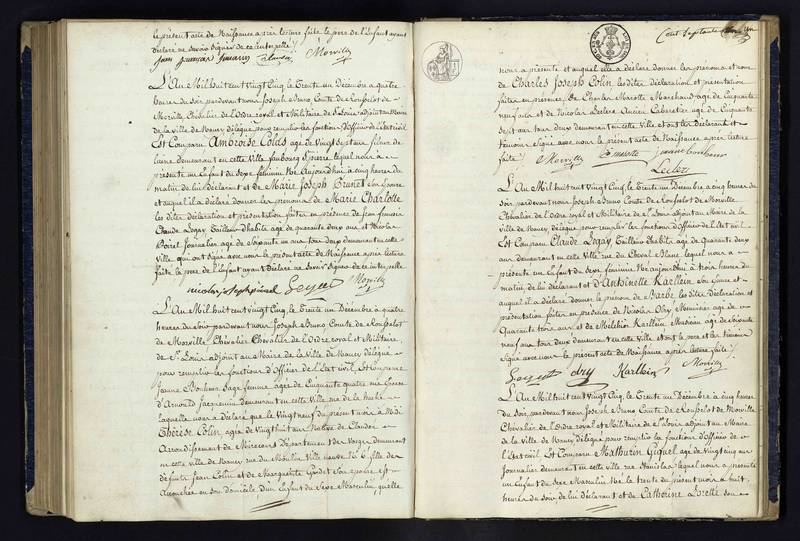 le présent acte de Naissance après lecture faite le pere de l'Enfant ayant
déclaré ne savoir signer de ce interpellé /.
Morville
L'An Mil huit cent vingt Cinq, le Trente un Décembre à quatre
heures du Soir pardevant nous Joseph Bruno Comte de Rousselot de
Morville, Chevalier de l'Ordre royal et Militaire de St Louis, adjoint au Maire
de la Ville de Nancy délégué pour remplir les fonctions d'Officier de l'État civil
Est Comparu Ambroise Colas âgé de Vingt Sept ans fileur de
laine demeurant en cette Ville faubourg St pierre lequel nous a
présenté un Enfant du Sexe féminin Né Aujourd'hui à Cinq heures du
matin de lui Déclarant et de Marie Joseph Brunet Son Epouse
et auquel il a déclaré donner les prénoms de Marie Charlotte
les dites déclaration et présentation faites en présence de Jean françois
Claude Logay Tailleur d'habits âgé de quarante deux ans et Nicolas
Poirel Journalier âgé de Soixante un ans tous deux demeurant en cette
Ville qui ont signé avec nous le présent acte de Naissance après lecture
faite, le pere de l'Enfant ayant Déclaré ne Savoir Signer de ce interpellé
nicolas joseph poirel Morville
L'An Mil huit cent vingt Cinq, le Trente un Décembre à quatre
heures du Soir pardevant nous Joseph Bruno Comte de Rousselot
de Morville Chevalier de l'Ordre royal et Militaire
de St Louis adjoint au Maire de la Ville de Nancy délégué
pour remplir les fonctions d'Officier de l'État civil Est Comparue
Jeanne Bonheur Sage femme, âgée de Cinquante quatre ans Epouse
d'Arnould Jacquemin demeurant en cette Ville rue de la hache
laquelle nous a déclaré que le Vingt neuf du présent mois à Midi
Thérèse Colin âgée de Vingt huit ans Native de
Arrondissement de Mirecourt Département des Vosges demeurant
en cette ville de Nancy rue du Moulin Ville neuve No 6 fille de
défunts Jean Colin et de Marguerite Godet Son épouse est
Accouchée en Son domicile d'un Enfant du Sexe Masculin, qu'elle
nous a présenté et auquel elle a déclaré donner les prénoms et nom
de Charles Joseph Colin, les dites déclaration et présentation
faites en présence de Charles Marotte Marchand âgé de Cinquante
neuf ans et de Nicolas Leclerc Ancien Cabaretier âgé de Cinquante
Sept ans tous deux demeurant en cette Ville et ont les déclarante et
témoins Signé avec nous le présent acte de Naissance après lecture
faite /. Morville
Leclerc
L'An Mil huit cent Vingt Cinq, le Trente un Décembre à cinq heures du
soir pardevant nous Joseph Bruno Comte de Rousselot de Morville
Chevalier de l'Ordre royal et Militaire de St Louis adjoint au Maire de la
Ville de Nancy délégué pour remplir les fonctions d'Officier de l'État civil
Est Comparu Claude Logay, Tailleur d'habits âgé de Quarante deux
ans demeurant en cette Ville rue du Cheval Blanc lequel nous a
présenté un Enfant du Sexe féminin, Né aujourd'hui à trois heures du
matin, de lui déclarant et d'Antoinette Karllein Son Epouse et
auquel il a déclaré donner le prénom de Barbe, les dites Déclaration et
présentation faites en présence de Nicolas Dry Menuisier âgé de
Quarante trois ans et de Melchior Karllein, âgé de Soixante
neuf ans tous deux demeurant en cette Ville et ont le pere et les témoins
Signé avec nous le présent acte de Naissance après lecture faite /.
dry Karllein Morville
L'An Mil huit cent Vingt Cinq, le Trente un Décembre à cinq heures
du Soir, pardevant nous Joseph Bruno Comte de Rousselot de Morville
Chevalier de l'Ordre royal et Militaire de St Louis, adjoint au Maire
de la Ville de Nancy délégué pour remplir les fonctions d'Officier de
l'État civil Est Comparu Mathurin Giquel âgé de Vingt cinq ans
Journalier demeurant en cette Ville rue Stanislas, lequel nous a présenté
un Enfant du Sexe Masculin Né le trente du présent mois à huit
heures du soir, de lui déclarant et de Catherine Son